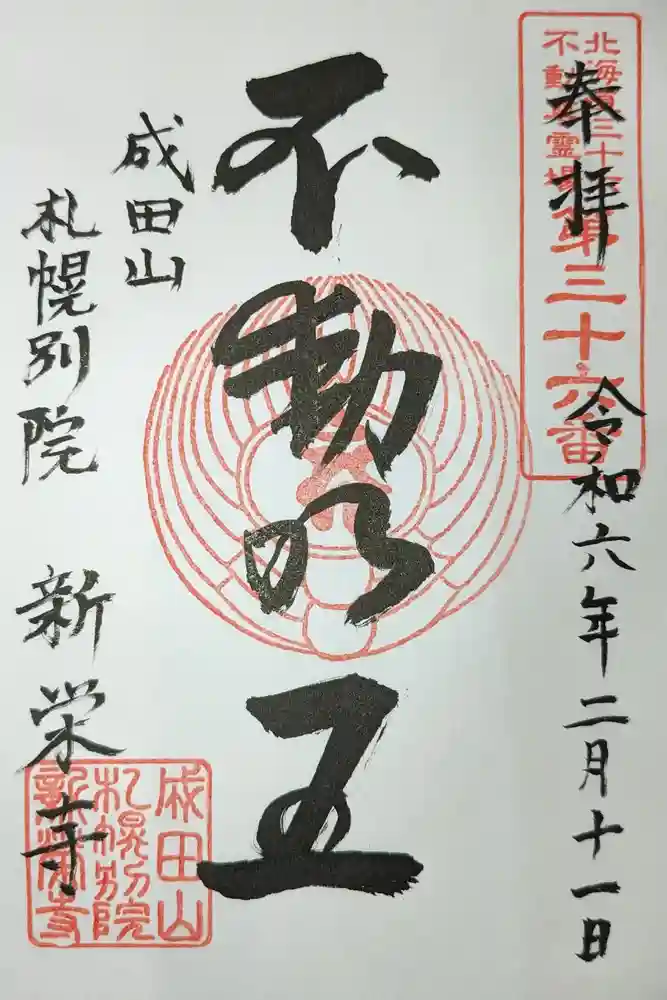 奉拝
令和六年二月十一日
北海道三十六
不動尊霊場
第三十六番
不動明王
成田山
札幌別院
新栄寺
成田山
札幌別院
新栄寺